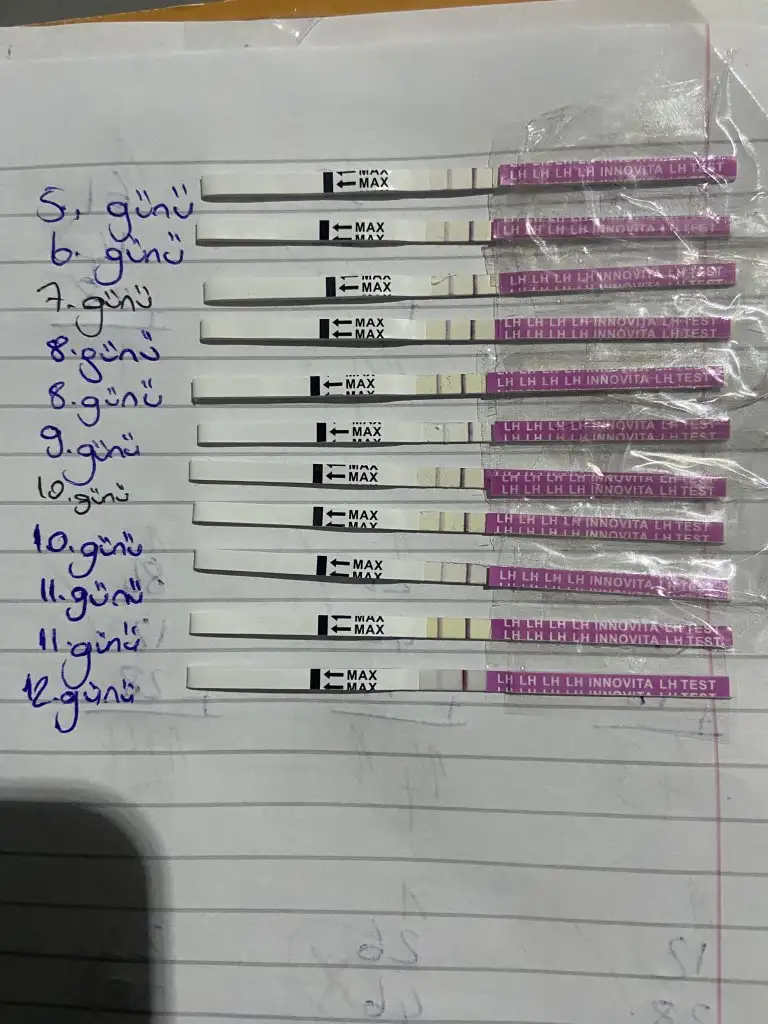 5. günü
MAX
MAX
LH LH LH LH INNOVITA LH TEST
6. günü
MAX
MAX
LH LH LH LH INNOVITA LH TEST
7. günü
MAX
MAX
LH LH LH LH INNOVITA LH TEST
8. günü
MAX
MAX
LH LH LH LH INNOVITA LH TEST
8. günü
MAX
MAX
LH LH LH LH INNOVITA LH TEST
9. günü
MAX
MAX
LH LH LH LH INNOVITA LH TEST
10. günü
MAX
MAX
LH LH LH LH INNOVITA LH TEST
10. günü
MAX
MAX
LH LH LH LH INNOVITA LH TEST
11. günü
MAX
MAX
LH LH LH LH INNOVITA LH TEST
11. günü
MAX
MAX
LH LH LH LH INNOVITA LH TEST
12. günü
MAX
MAX
LH LH LH LH INNOVITA LH TEST